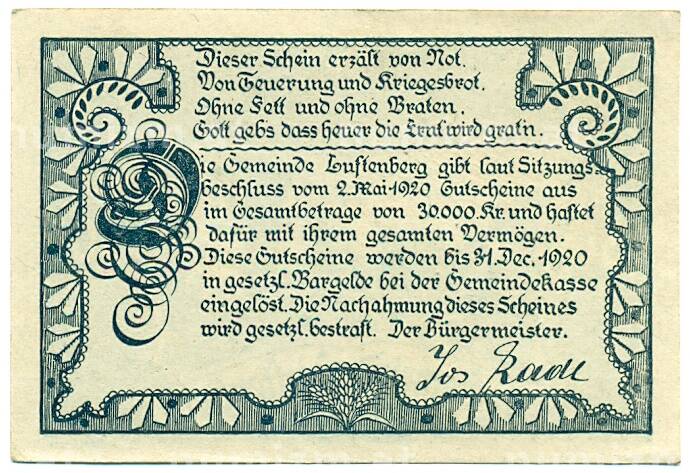 Dieser Schein erzält von Not.
Von Teuerung und Kriegesbrot.
Ohne Fett und ohne Braten,
Gott geb's dass heuer die Ernt wird gratn.
Die Gemeinde Luftenberg gibt laut Sitzungs-
beschluss vom 2. Mai 1920 Gutscheine aus
im Gesamtbetrage von 30.000 Kr. und haftet
dafür mit ihrem gesamten Vermögen.
Diese Gutscheine werden bis 31. Dec. 1920
in gesetzl. Bargelde bei der Gemeindekasse
eingelöst. Die Nachahmung dieses Scheines
wird gesetzl. bestraft. Der Bürgermeister.
Jos